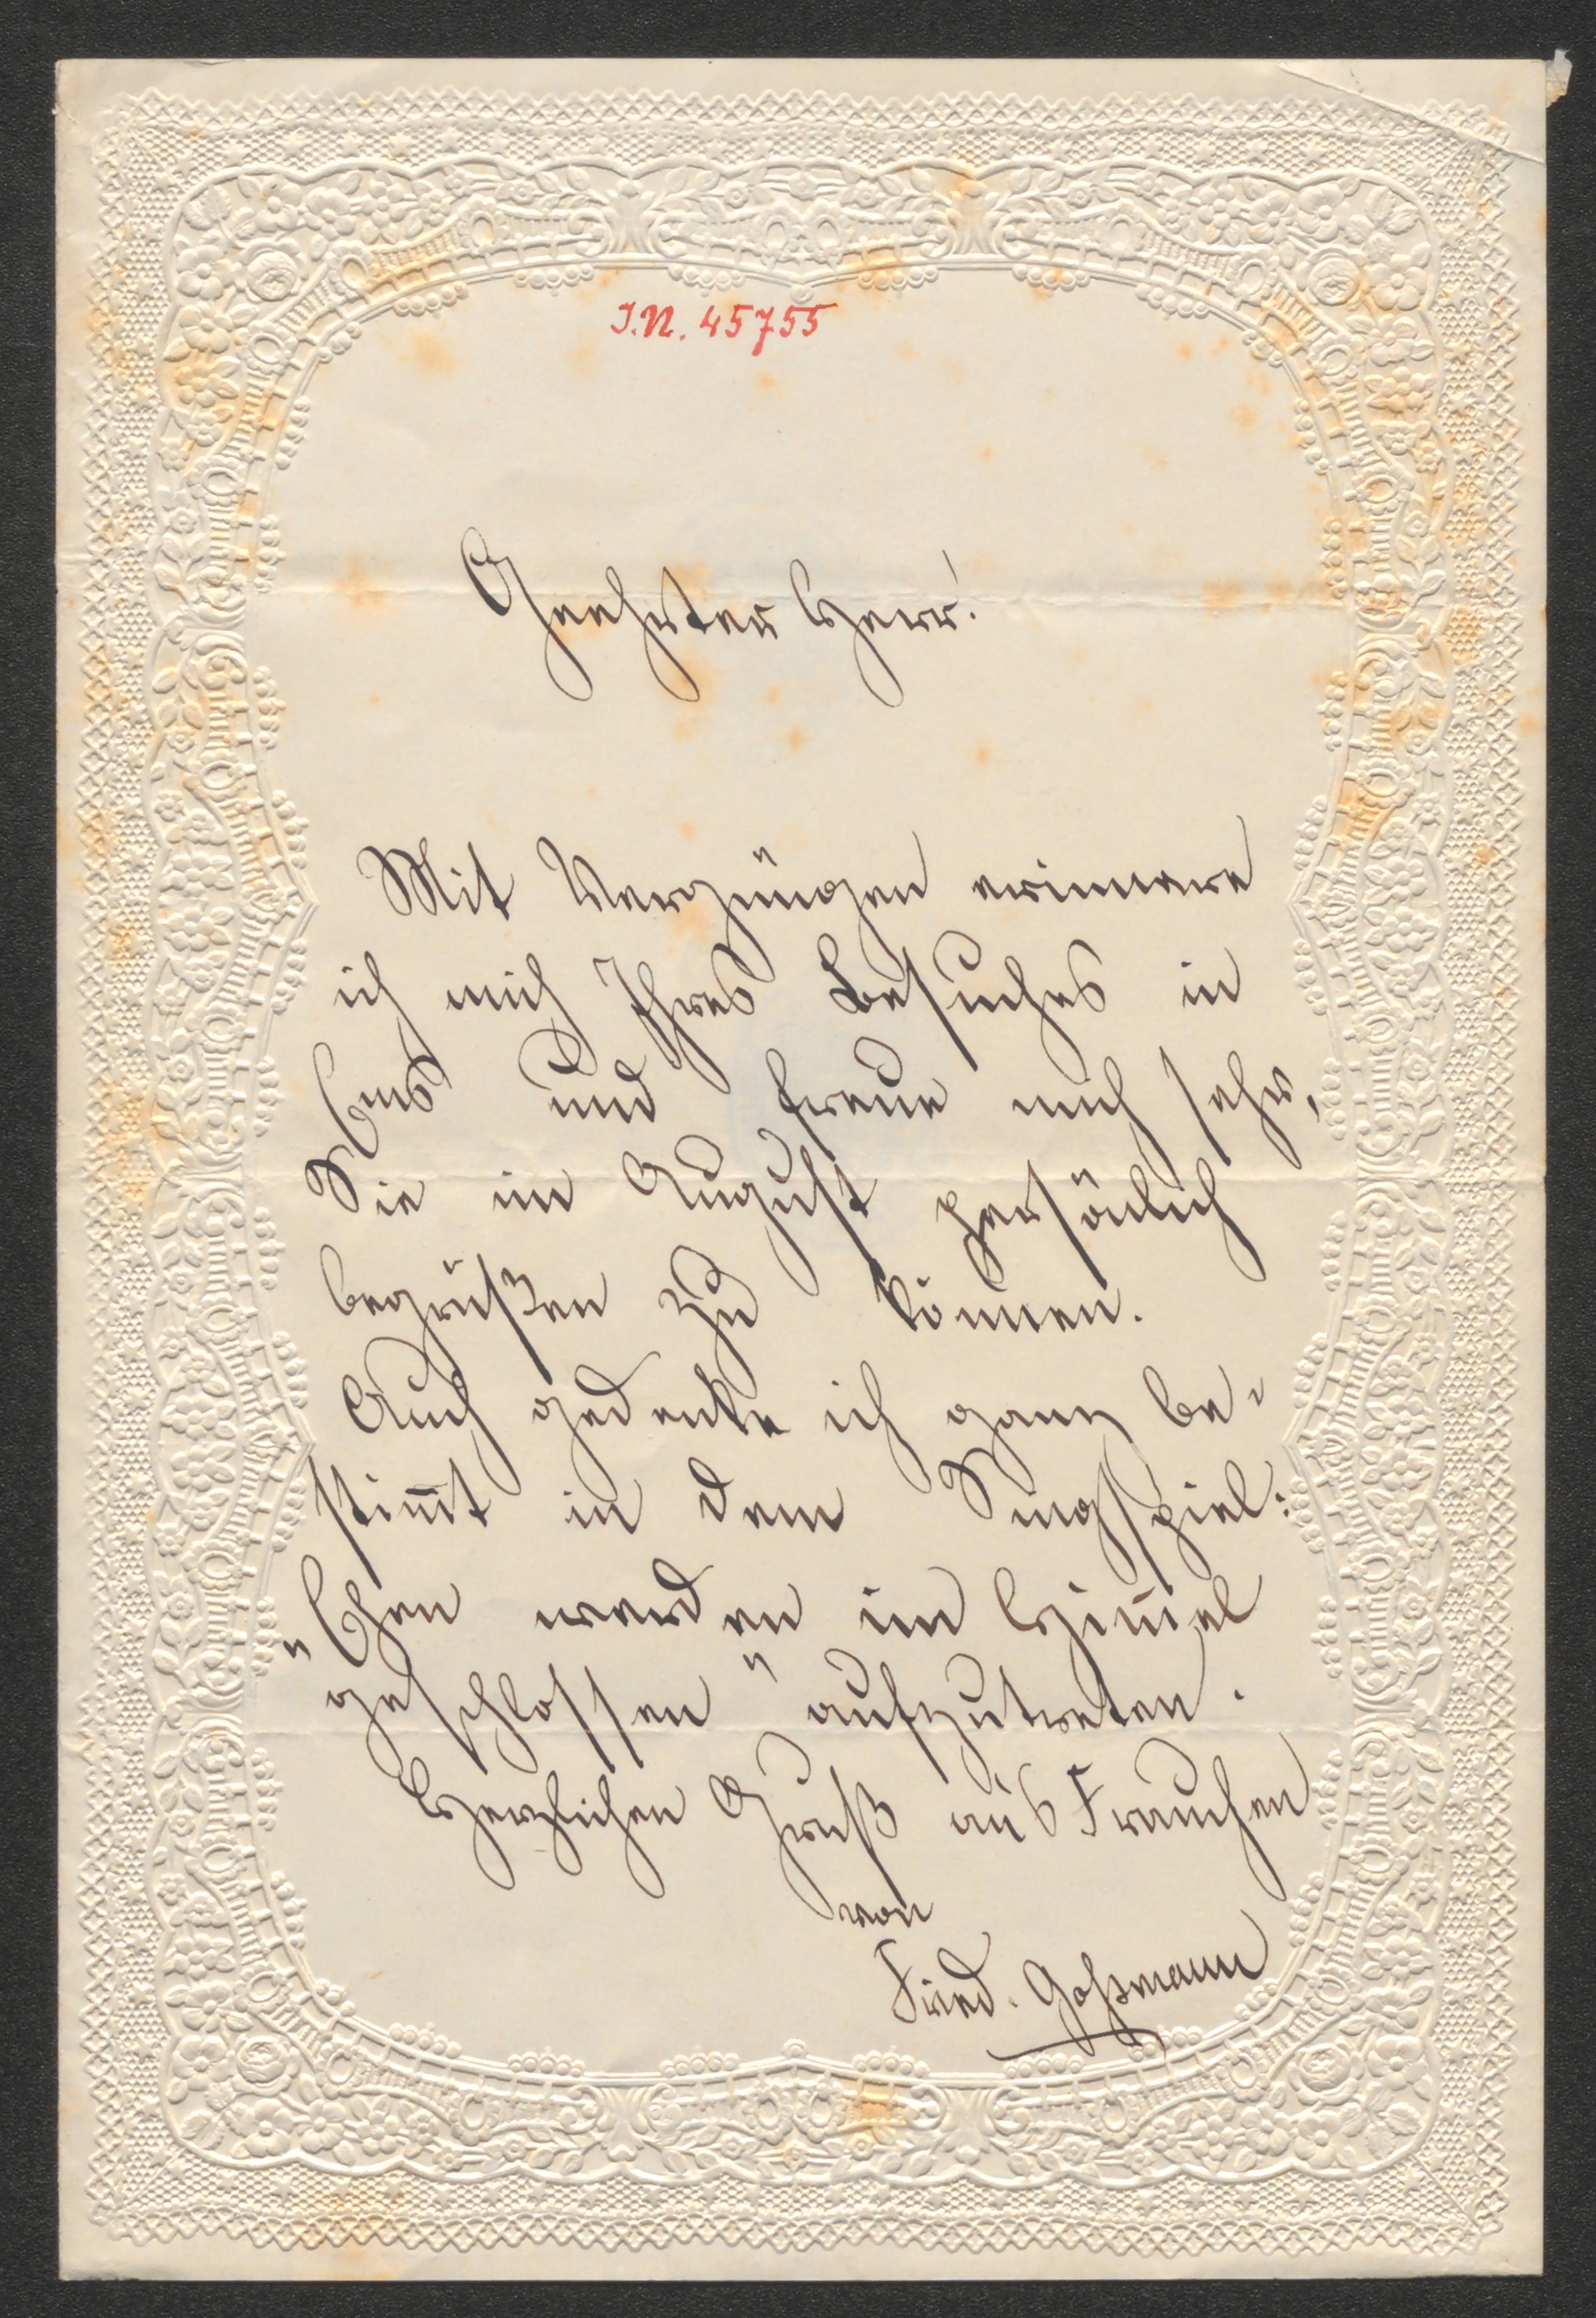 I.N. 45755
Geehrter Herr!
Mit Vergnügen erinnere
ich mich Ihres Besuches in
Ems und freue mich sehr,
Sie im August persönlich
begrüßen zu können.
Auch gedenke ich ganz be-
stim̅t in dem Singspiel:
„Ehen werden im Him̅el
geschlossen" aufzutreten.
Herzlichen Gruß aus
von
Fried. Goßmann